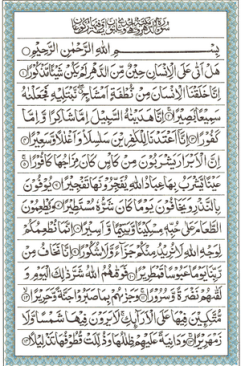 بِسْمِ اللهِ الرَّحْمٰنِ الرَّحِيْمِ
هَلْ اَتٰى عَلَى الْاِنْسَانِ حِيْنٌ مِّنَ الدَّهْرِ لَمْ يَكُنْ شَيْئًا مَّذْكُوْرًا ①
اِنَّا خَلَقْنَا الْاِنْسَانَ مِنْ نُّطْفَةٍ اَمْشَاجٍ نَّبْتَلِيْهِ فَجَعَلْنٰهُ
سَمِيْعًۢا بَصِيْرًا ② اِنَّا هَدَيْنٰهُ السَّبِيْلَ اِمَّا شَاكِرًا وَّاِمَّا
كَفُوْرًا ③ اِنَّاۤ اَعْتَدْنَا لِلْكٰفِرِيْنَ سَلٰسِلَا۟ وَاَغْلٰلًا وَّسَعِيْرًا ④
اِنَّ الْاَبْرَارَ يَشْرَبُوْنَ مِنْ كَاْسٍ كَانَ مِزَاجُهَا كَافُوْرًا ⑤
عَيْنًا يَّشْرَبُ بِهَا عِبَادُ اللهِ يُفَجِّرُوْنَهَا تَفْجِيْرًا ⑥ يُوْفُوْنَ
بِالنَّذْرِ وَيَخَافُوْنَ يَوْمًا كَانَ شَرُّهٗ مُسْتَطِيْرًا ⑦ وَيُطْعِمُوْنَ
الطَّعَامَ عَلٰى حُبِّهٖ مِسْكِيْنًا وَّيَتِيْمًا وَّاَسِيْرًا ⑧ اِنَّمَا نُطْعِمُكُمْ
لِوَجْهِ اللهِ لَا نُرِيْدُ مِنْكُمْ جَزَآءً وَّلَا شُكُوْرًا ⑨ اِنَّا نَخَافُ مِنْ
رَّبِّنَا يَوْمًا عَبُوْسًا قَمْطَرِيْرًا ⑩ فَوَقٰىهُمُ اللهُ شَرَّ ذٰلِكَ الْيَوْمِ وَ
لَقّٰىهُمْ نَضْرَةً وَّسُرُوْرًا ⑪ وَجَزٰىهُمْ بِمَا صَبَرُوْا جَنَّةً وَّحَرِيْرًا ⑫
مُّتَّكِـِٕيْنَ فِيْهَا عَلَى الْاَرَآئِكِ لَا يَرَوْنَ فِيْهَا شَمْسًا وَّلَا
زَمْهَرِيْرًا ⑬ وَدَانِيَةً عَلَيْهِمْ ظِلٰلُهَا وَذُلِّلَتْ قُطُوْفُهَا تَذْلِيْلًا ⑭